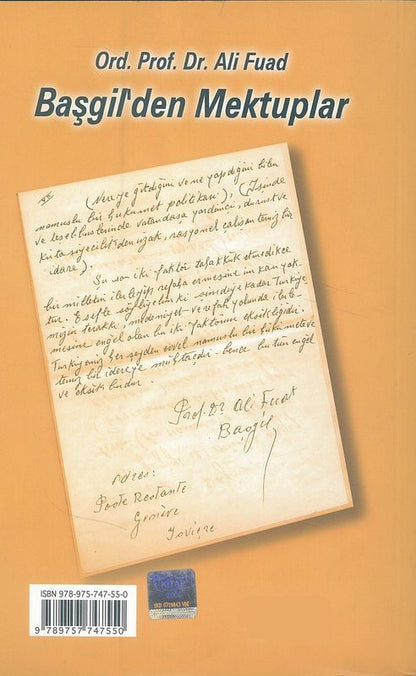 Ord. Prof. Dr. Ali Fuad
Başgil'den Mektuplar
(Nereye gittiğini ve ne yapdığını bilen
namuslu bir hukumet politikası), (İşinde
ve teşebbüslerinde vatandaşa yardımcı, dürüst ve
kırtasiyecilikden uzak, rasyonel çalışan temiz bir
idare).
Şu son iki faktör tahakkuk etmedikce
bir milletin ilerleyip refaha ermesine imkan yok-
tur. Esefle söyliyelim ki şimdiye kadar Türkiye
mizin terakki, medeniyet ve refah yolunda ilerle-
mesine engel olan bu iki faktörün eksikliğidir.
Türkiyemiz her şeyden evvel namuslu bir hükümete ve
temiz bir idareye muhtaçdır. bence bütün engel
ve eksik budur.
Prof. Dr Ali Fuat
Başgil
Adres:
Poste Restante
Genève
İsviçre
ISBN 978-975-747-55-0
9 789757 747550
KİTAP